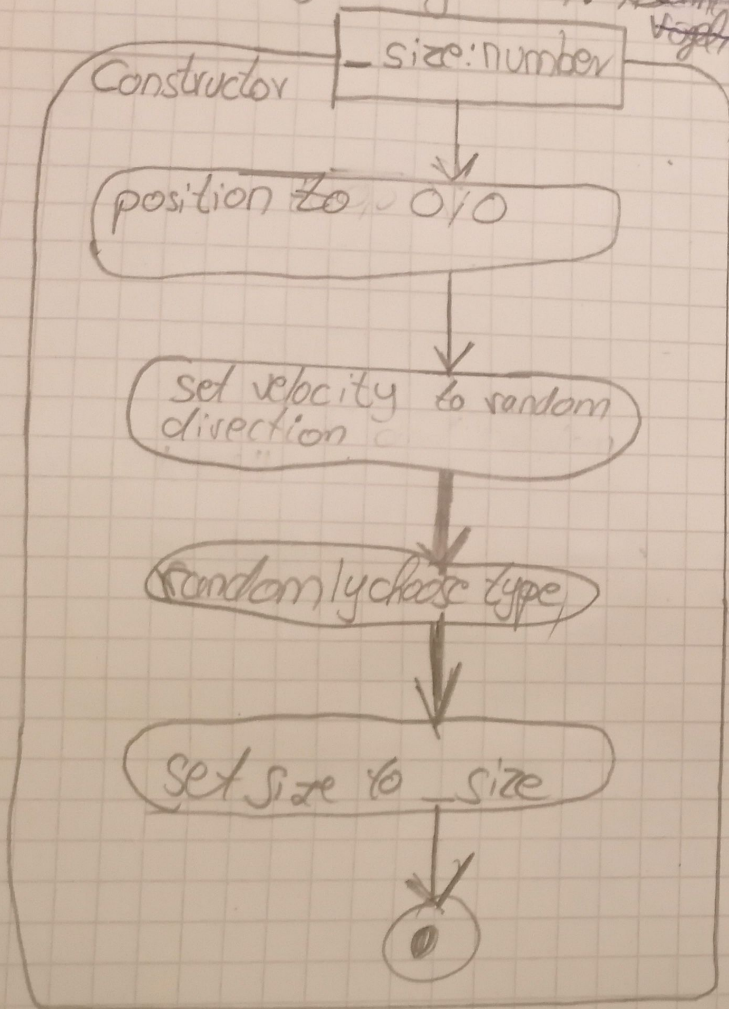 _size:number
Constructor
position to 0/0
set velocity to random
direction
randomly choose type
set size to _size